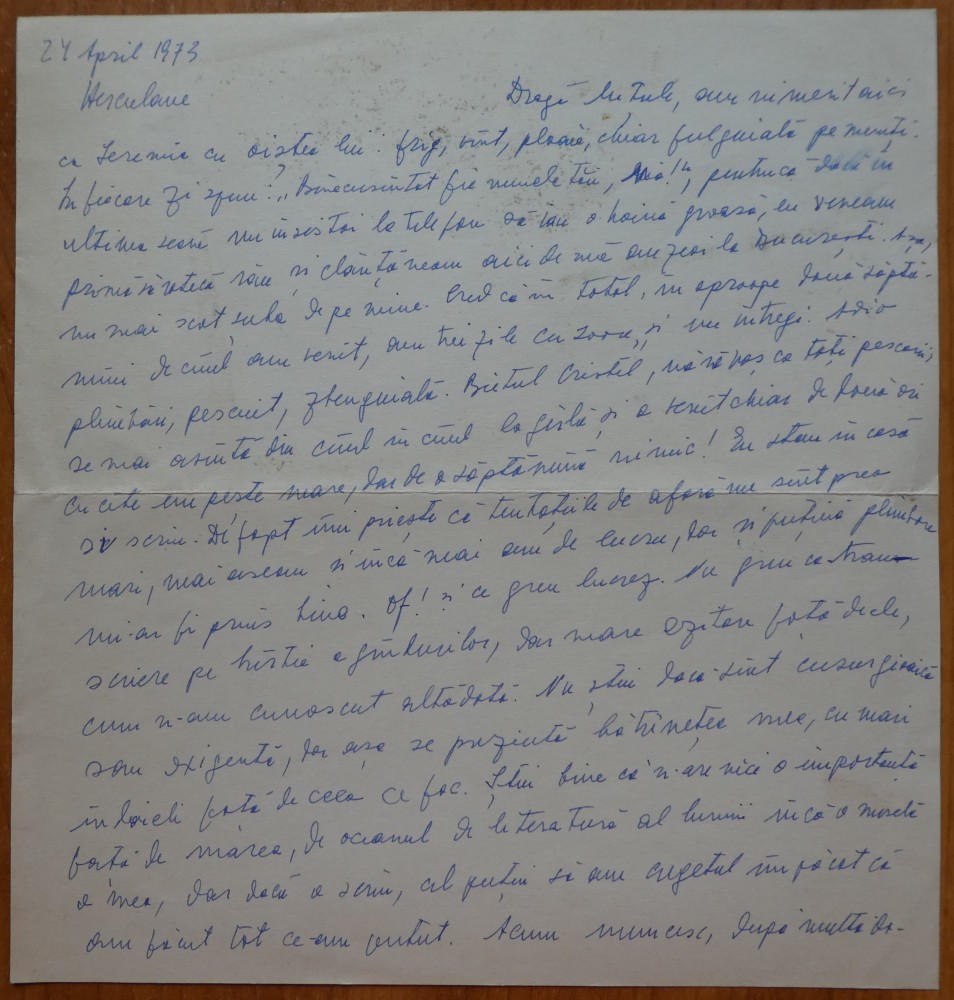 24 April 1973
Herculane
Dragă, am nimerit aici
ca Ieremia cu oiștea lui. Frig, vînt, ploaie, chiar fulguială pe munți.
În fiecare zi spun: "Binecuvîntat fie numele tău,!", pentrucă dacă în
ultima seară nu insistai la telefon să iau o haină groasă, eu veneam
primăvăratecă și clănțăneam aici de mă auzeai la București. Așa,
nu mai scot șuba de pe mine. Cred că în total, în aproape două săptă-
mîni de cînd am venit, am trei zile cu soare, și nu întregi. Adio
plimbări, pescuit, zbenguială. Bietul Cristel, nărăvaș ca toți pescarii,
se mai avîntă din cînd în cînd la gîrlă și a venit chiar de două ori
cu cîte un pește mare, dar de o săptămînă nimic! Eu stau în casă
și scriu. De fapt îmi priește că tentațiile de afară nu sînt prea
mari, mai aveam și încă mai am de lucru, dar și puțină plimbare
mi-ar fi prins bine. Of! și ce greu lucrez. Nu greu ca tran-
scriere pe hîrtie a gîndurilor, dar mare ezitare față de ele,
cum n-am cunoscut altădată. Nu știu dacă sînt
sau exigentă, dar așa se prezintă bătrînețea mea, cu mari
îndoieli față de ceea ce fac. Știu bine că n-are nici o importanță
față de marea, de oceanul de literatură al lumii încă o nuvelă
a mea, dar dacă o scriu, cel puțin să am cugetul împăcat că
am făcut tot ce-am putut. Acum muncesc, după multă